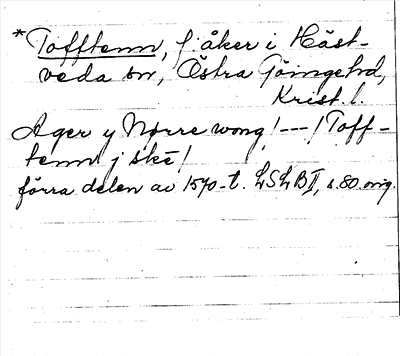 *Tofftenn, f. åker i Häst-
veda sn, Östra Göinge hd,
Krist. l.
Ager y Nørre wong /---/ Toff-
tenn j skē /
förra delen av 1570-t. LSLB II, s. 80. orig.